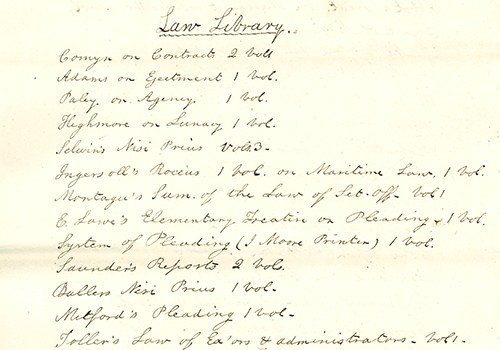 Law Library.
Comyn on Contracts 2 Voll
Adams on Ejectment 1 Vol.
Paley on Agency 1 vol.
Highmore on Lunacy 1 vol.
Selwin's Nisi Prius vol.3-
Ingersoll's Roccus 1 vol. on Maritime Law. 1 vol.
Montagu's Sum. of the Law of Set-off- vol 1
E. Lawe's Elementary Treatin on Pleading - 1 vol.
System of Pleading (J Moore Printer) 1 vol.
Saunder's Reports 2 Vol.
Bullers Nisi Prius 1 vol.
Mitford's Pleading 1 vol-
Toller's Law of Ex'ors & administrators - vol 1-